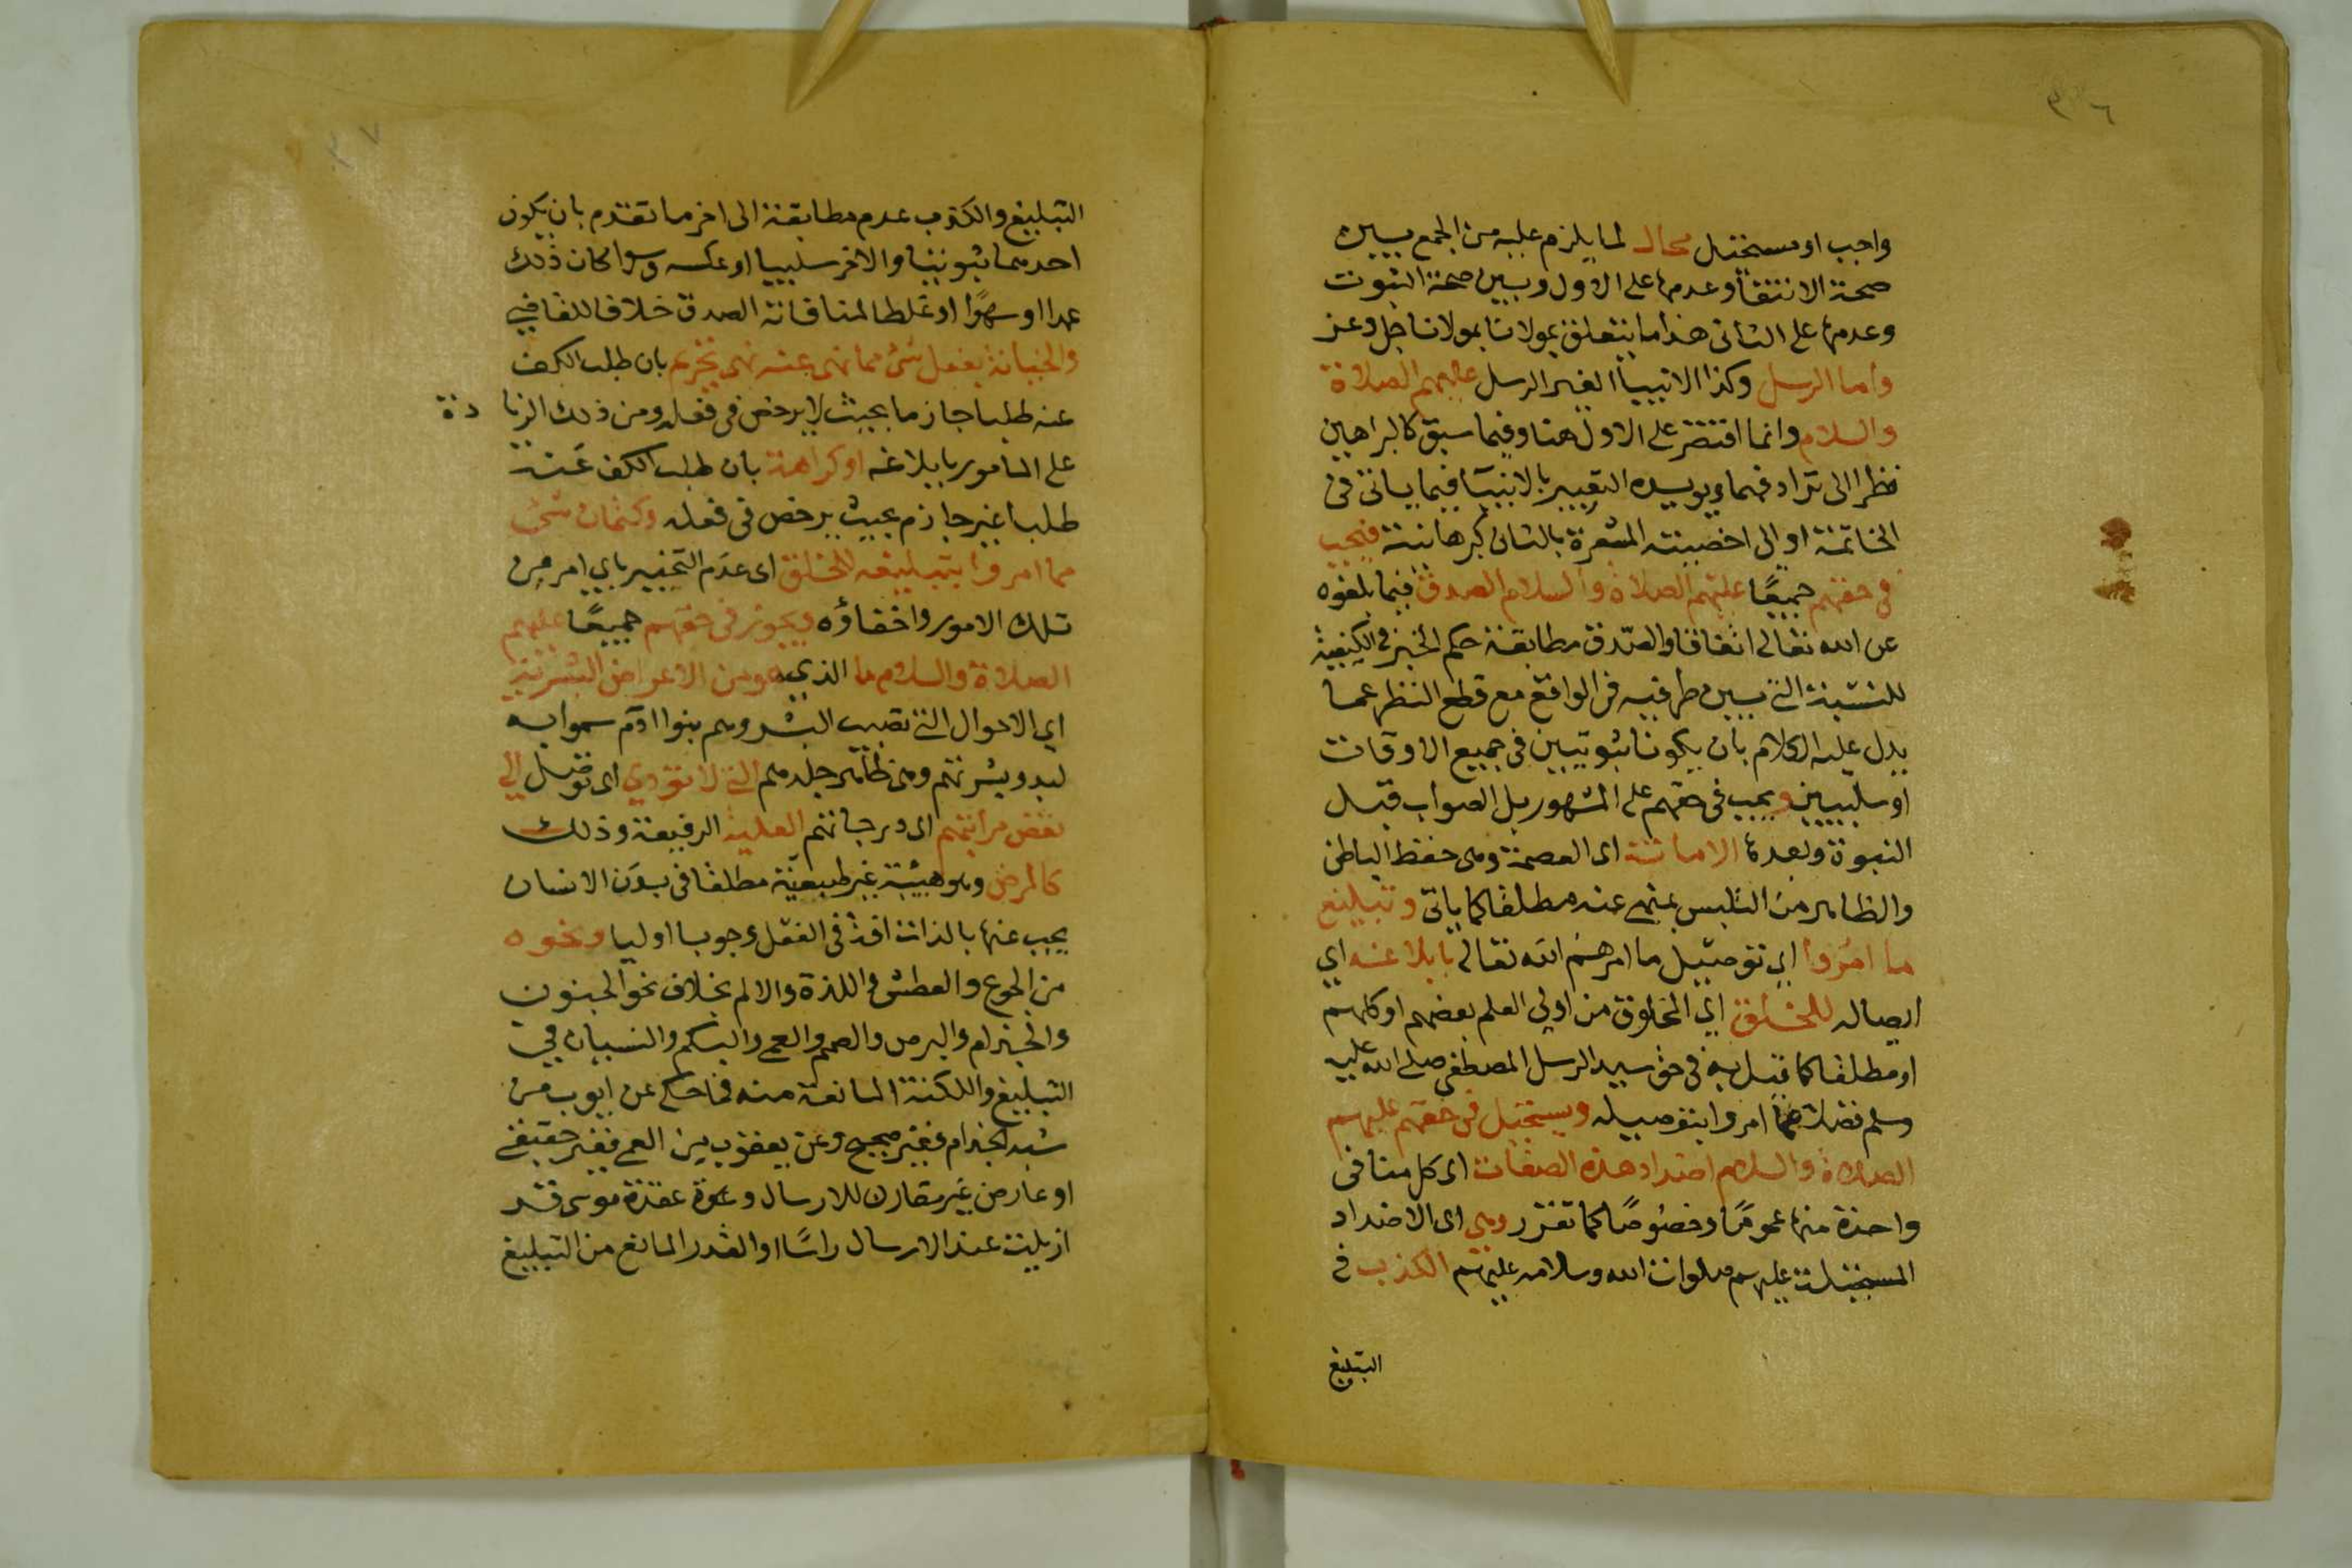 ٣٦
واجب او مستحيل محال لما يلزم عليه من الجمع بين
صحة الانتفأ وعدمها على الاول وبين صحة الثبوت
وعدمها على الثانى هذا ما يتعلق بمولانا بمولانا جل وعز
واما الرسل وكذا الانبيأ الغير الرسل عليهم الصلاة
والسلام وانما اقتصر على الاول هنا وفيما سبق كالبراهين
نظرا الى ترادفهما ويويده التعبير بالانبيآ فيما ياتى فى
الخاتمة او الى اخصيته المشعرة بالشان كبرهانية فيجب
فى حقهم جميعًا عليهم الصلاة والسلام الصدق فيما بلغوه
عن الله تعالى اتفاقا والصّدق مطابقة حكم الخبر فى الكيفية
للنسبة التى بين طرفيه فى الواقع مع قطع النظر عما
يدل عليه الكلام بان يكونا ثبوتيين فى جميع الاوقات
او سلبيين ويجب فى حقهم على المشهور بل الصواب قبل
النبوة وبعدها الامانة اى العصمة وهى حفظ الباطن
والظاهر من التلبس بمنهى عنه مطلقا كما ياتى وتبليغ
ما امروا اى توصيل ما امرهم الله تعالى بابلاغه اي
ايصاله للخلق اي المخلوق من اولي العلم بعضهم او كلهم
او مطلقا كما قيل به فى حق سيد الرسل المصطفى صلى الله عليه
وسلم فضلا عما امروا بتوصيله ويستحيل فى حقهم عليهم
الصلاة والسلام اضداد هذه الصفات اى كل منافى
واحدة منها عمومًا وخصوصًا كما تقرر وهى اى الاضداد
المستحيلة عليهم صلوات الله وسلامه عليهم الكذب فى
التبليغ
٣٧
التبليغ والكذب عدم مطابقة الى اخر ما تقدم بان يكون
احدهما ثبوتيا والاخر سلبيا او عكسه وسوا كان ذلك
عمدا او سهوًا او غلطا لمنافاته الصدق خلافا للقاضي
والخيانة بفعل شئ مما نهى عنه نهى تحريم بان طلب الكف
عنه طلبا جازما بحيث لا يرخص فى فعله ومن ذلك الزيا دة
على المامور بابلاغه او كراهة بان طلب الكف عنه
طلبا غير جازم بحيث يرخص فى فعله وكتمان شئ
مما امروا بتبليغه للخلق اى عدم التخبير باي امر من
تلك الامور واخفاؤه ويجوز فى حقهم جميعًا عليهم
الصلاة والسلام ما الذي هو من الاعراض البشرية
اي الاحوال التى تصيب البشر وهم بنوا ادم سموا به
لبدو بشرتهم وهى ظاهر جلدهم التى لا تؤدي اى توصل الى
نقص مراتبهم اى درجاتهم العلية الرفيعة وذلك
كالمرض وهو هيئة غير طبيعيّة مطلقا فى بدن الانسان
يجب عنها بالذات افة فى الفعل وجوبا اوليا ونحوه
من الجوع والعطش واللذة والالم بخلاف نحو الجنون
والجذام والبرص والصمم والعمى والبكم والنسيان في
التبليغ واللكنة المانعة منه فما حكى عن ايوب من
شبه الجذام فغير صحيح وعن يعقوب من العمى فغير حقيقى
او عارض غير مقارن للارسال وعقدة موسى قد
ازيلت عند الارسال راسًا او القدر المانع من التبليغ